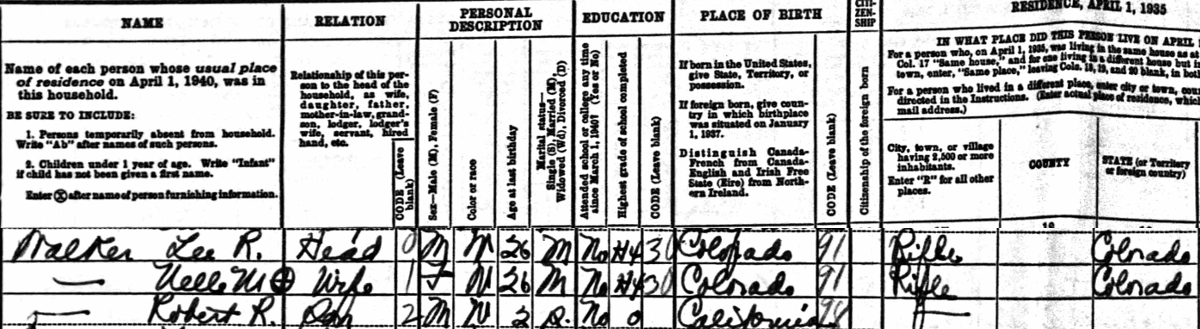 NAME
RELATION
PERSONAL DESCRIPTION
EDUCATION
PLACE OF BIRTH
CITI-
ZEN-
SHIP
RESIDENCE, APRIL 1, 1935
Name of each person whose usual place
of residence on April 1, 1940, was in
this household.
BE SURE TO INCLUDE:
1. Persons temporarily absent from household.
Write "Ab" after names of such persons.
2. Children under 1 year of age. Write "Infant"
if child has not been given a first name.
Enter ⓧ after name of person furnishing information.
Relationship of this per-
son to the head of the
household, as wife,
daughter, father,
mother-in-law, grand-
son, lodger, lodger's
wife, servant, hired
hand, etc.
CODE (Leave
blank)
Sex—Male (M), Female (F)
Color or race
Age at last birthday
Marital status—
Single (S), Married (M),
Widowed (Wd), Divorced (D)
Attended school or college any time
since March 1, 1940? (Yes or No)
Highest grade of school completed
CODE (Leave blank)
If born in the United States,
give State, Territory, or
possession.
If foreign born, give coun-
try in which birthplace
was situated on January
1, 1937.
Distinguish Canada-
French from Canada-
English and Irish Free
State (Eire) from North-
ern Ireland.
CODE (Leave blank)
Citizenship of the foreign born
IN WHAT PLACE DID THIS PERSON LIVE ON APRIL 1
For a person who, on April 1, 1935, was living in the same house as at
Col. 17 "Same house," and for one living in a different house but in
town, enter, "Same place," leaving Cols. 18, 19, and 20 blank, in both
For a person who lived in a different place, enter city or town, coun
directed in the Instructions. (Enter actual place of residence, which
mail address.)
City, town, or village
having 2,500 or more
inhabitants.
Enter "R" for all other
places.
COUNTY
STATE (or Territory
or foreign country)
Walker Lee R. Head 0 M W 26 M No H4 30 Colorado 91 Rifle Colorado
— Nelle M ⊕ Wife 1 F W 26 M No H4 30 Colorado 91 Rifle Colorado
— Robert R. Son 2 M W 2 S. No 0 California 98